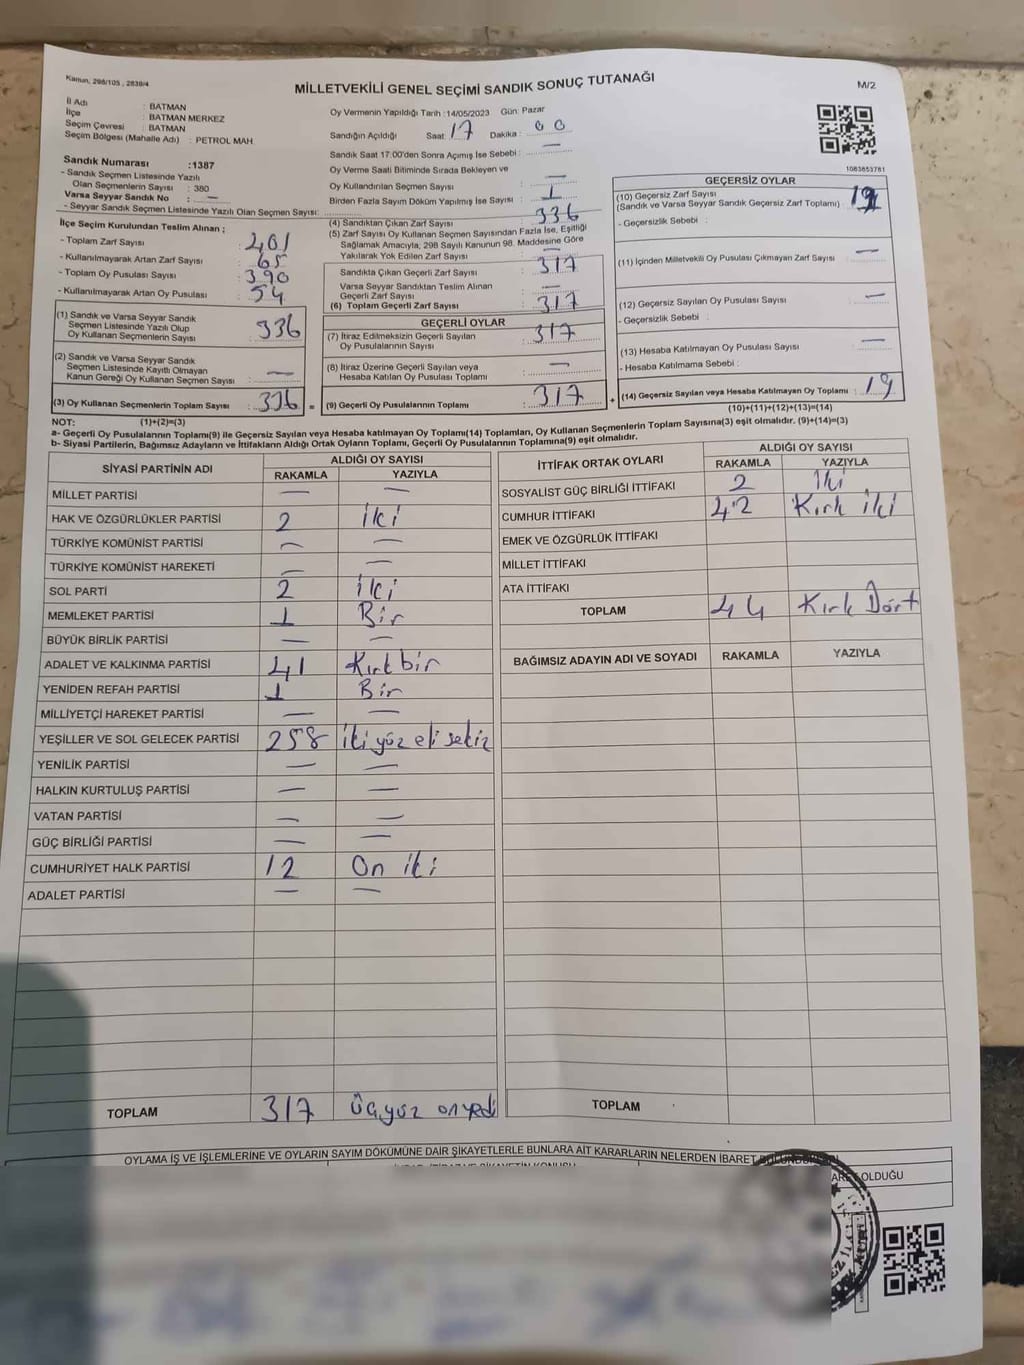 Kanun, 298/105 , 2839/4
MİLLETVEKİLİ GENEL SEÇİMİ SANDIK SONUÇ TUTANAĞI
M/2
İl Adı : BATMAN
İlçe : BATMAN MERKEZ
Seçim Çevresi : BATMAN
Seçim Bölgesi (Mahalle Adı) : PETROL MAH.
Oy Vermenin Yapıldığı Tarih :14/05/2023 Gün: Pazar
Sandığın Açıldığı Saat: 17 Dakika : 00
Sandık Saat 17:00'den Sonra Açımış İse Sebebi : —
Oy Verme Saati Bitiminde Sırada Bekleyen ve
Oy Kullandırılan Seçmen Sayısı : —
Birden Fazla Sayım Döküm Yapılmış İse Sayısı : 1
1083853781
Sandık Numarası :1387
- Sandık Seçmen Listesinde Yazılı
Olan Seçmenlerin Sayısı : 380
Varsa Seyyar Sandık No : —
- Seyyar Sandık Seçmen Listesinde Yazılı Olan Seçmen Sayısı:
İlçe Seçim Kurulundan Teslim Alınan ;
- Toplam Zarf Sayısı : 401
- Kullanılmayarak Artan Zarf Sayısı : 65
- Toplam Oy Pusulası Sayısı : 390
- Kullanılmayarak Artan Oy Pusulası : 54
(1) Sandık ve Varsa Seyyar Sandık
Seçmen Listesinde Yazılı Olup
Oy Kullanan Seçmenlerin Sayısı : 336
(2) Sandık ve Varsa Seyyar Sandık
Seçmen Listesinde Kayıtlı Olmayan
Kanun Gereği Oy Kullanan Seçmen Sayısı : —
(3) Oy Kullanan Seçmenlerin Toplam Sayısı : 336 =
(1)+(2)=(3)
(4) Sandıktan Çıkan Zarf Sayısı : 336
(5) Zarf Sayısı Oy Kullanan Seçmen Sayısından Fazla İse, Eşitliği
Sağlamak Amacıyla, 298 Sayılı Kanunun 98. Maddesine Göre
Yakılarak Yok Edilen Zarf Sayısı : —
Sandıkta Çıkan Geçerli Zarf Sayısı : 317
Varsa Seyyar Sandıktan Teslim Alınan
Geçerli Zarf Sayısı : —
(6) Toplam Geçerli Zarf Sayısı : 317
GEÇERLİ OYLAR
(7) İtiraz Edilmeksizin Geçerli Sayılan
Oy Pusulalarının Sayısı : 317
(8) İtiraz Üzerine Geçerli Sayılan veya
Hesaba Katılan Oy Pusulası Toplamı : —
(9) Geçerli Oy Pusulalarının Toplamı : 317 +
GEÇERSİZ OYLAR
(10) Geçersiz Zarf Sayısı
(Sandık ve Varsa Seyyar Sandık Geçersiz Zarf Toplamı) : 19
- Geçersizlik Sebebi :
(11) İçinden Milletvekili Oy Pusulası Çıkmayan Zarf Sayısı : —
(12) Geçersiz Sayılan Oy Pusulası Sayısı : —
- Geçersizlik Sebebi :
(13) Hesaba Katılmayan Oy Pusulası Sayısı : —
- Hesaba Katılmama Sebebi :
(14) Geçersiz Sayılan veya Hesaba Katılmayan Oy Toplamı : 19
(10)+(11)+(12)+(13)=(14)
NOT:
a- Geçerli Oy Pusulalarının Toplamı(9) ile Geçersiz Sayılan veya Hesaba katılmayan Oy Toplamı(14) Toplamları, Oy Kullanan Seçmenlerin Toplam Sayısına(3) eşit olmalıdır. (9)+(14)=(3)
b- Siyasi Partilerin, Bağımsız Adayların ve İttifakların Aldığı Ortak Oyların Toplamı, Geçerli Oy Pusulalarının Toplamına(9) eşit olmalıdır.
SİYASİ PARTİNİN ADI ALDIĞI OY SAYISI
RAKAMLA YAZIYLA
MİLLET PARTİSİ — —
HAK VE ÖZGÜRLÜKLER PARTİSİ 2 İki
TÜRKİYE KOMÜNİST PARTİSİ — —
TÜRKİYE KOMÜNİST HAREKETİ — —
SOL PARTİ 2 İki
MEMLEKET PARTİSİ 1 Bir
BÜYÜK BİRLİK PARTİSİ — —
ADALET VE KALKINMA PARTİSİ 41 Kırkbir
YENİDEN REFAH PARTİSİ 1 Bir
MİLLİYETÇİ HAREKET PARTİSİ — —
YEŞİLLER VE SOL GELECEK PARTİSİ 258 iki yüz eli sekiz
YENİLİK PARTİSİ — —
HALKIN KURTULUŞ PARTİSİ — —
VATAN PARTİSİ — —
GÜÇ BİRLİĞİ PARTİSİ — —
CUMHURİYET HALK PARTİSİ 12 On iki
ADALET PARTİSİ — —
TOPLAM 317 Üçyüz onyedi
İTTİFAK ORTAK OYLARI ALDIĞI OY SAYISI
RAKAMLA YAZIYLA
SOSYALİST GÜÇ BİRLİĞİ İTTİFAKI 2 İki
CUMHUR İTTİFAKI 42 Kırk iki
EMEK VE ÖZGÜRLÜK İTTİFAKI
MİLLET İTTİFAKI
ATA İTTİFAKI
TOPLAM 44 Kırk Dört
BAĞIMSIZ ADAYIN ADI VE SOYADI RAKAMLA YAZIYLA
TOPLAM
OYLAMA İŞ VE İŞLEMLERİNE VE OYLARIN SAYIM DÖKÜMÜNE DAİR ŞİKAYETLERLE BUNLARA AİT KARARLARIN NELERDEN İBARET BULUNDUĞU
OLDUĞU